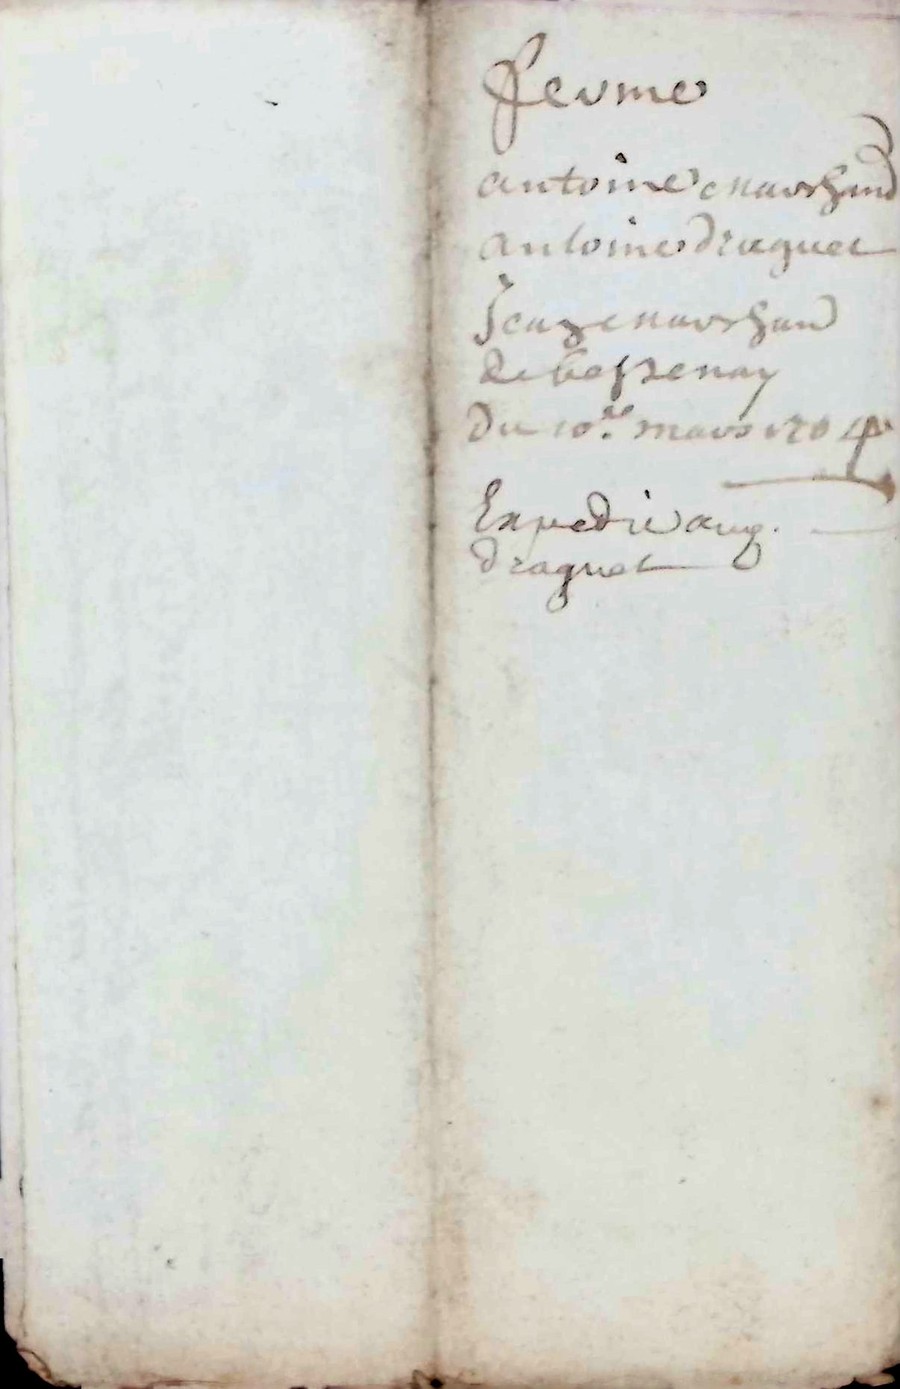 ferme
antoine marchand
antoine draguet
Jean marchand
de bessenay
du 10e mars 1704
Expedié aug.
draguet